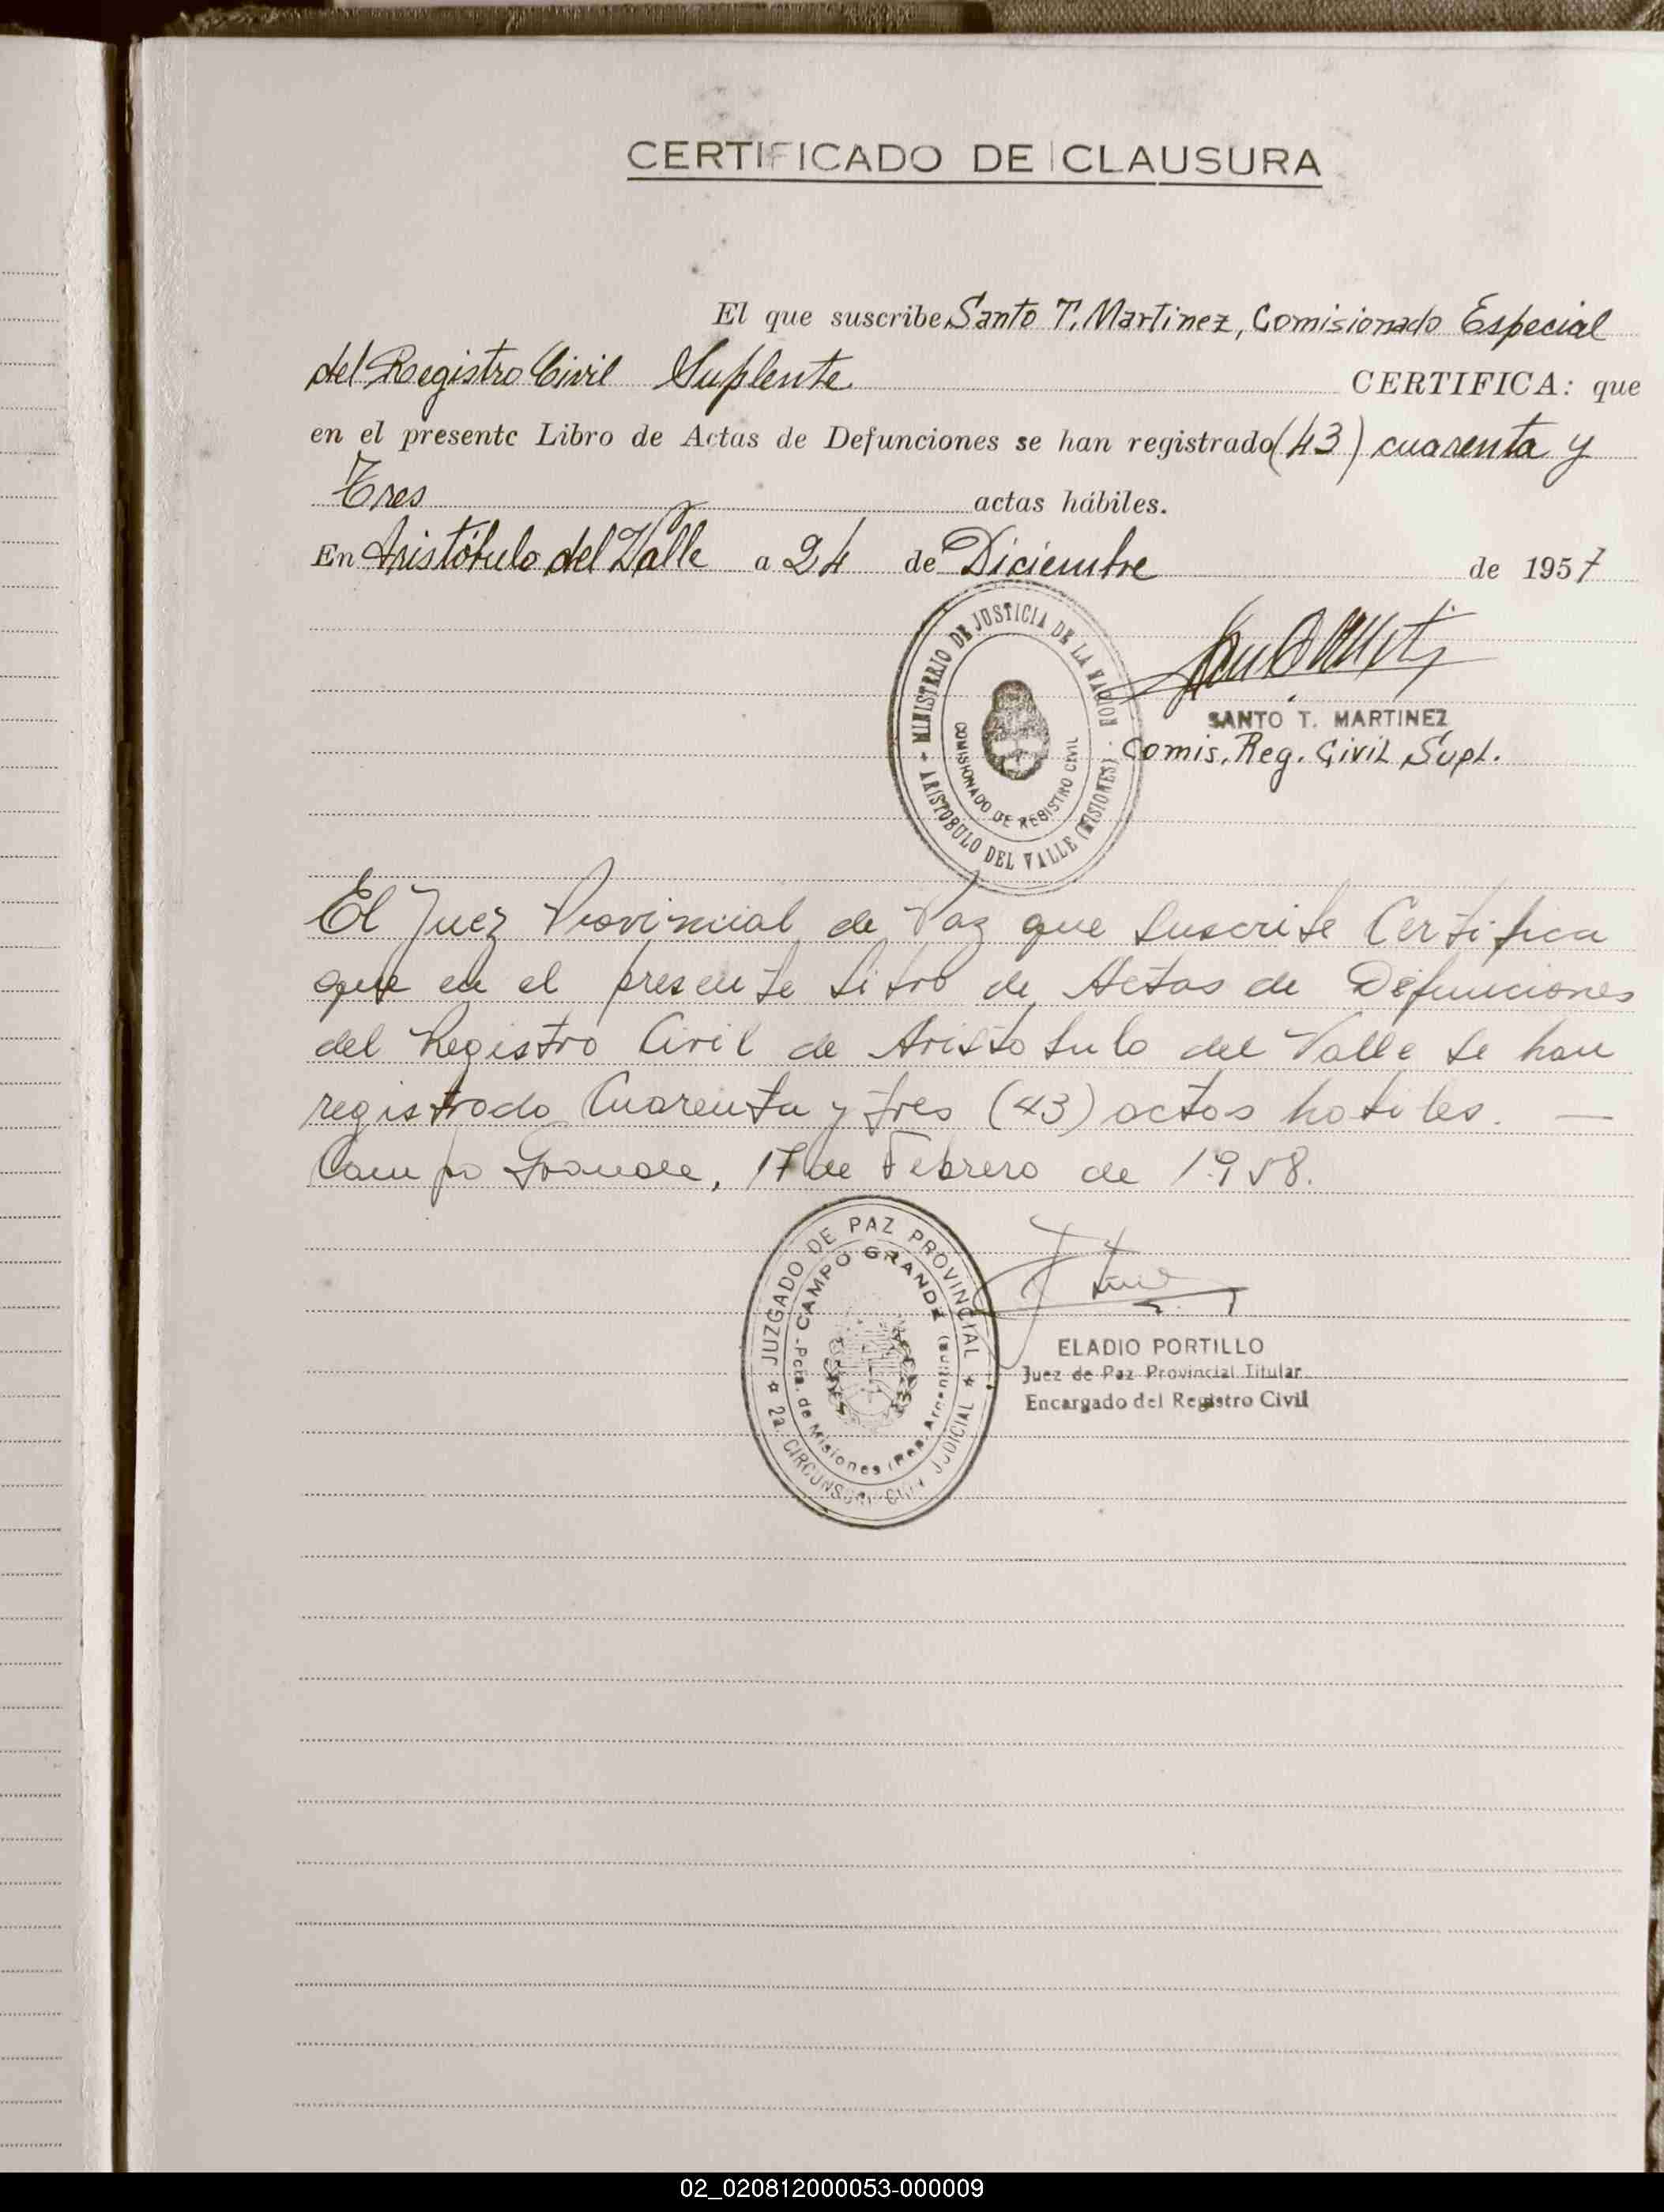 CERTIFICADO DE CLAUSURA
El que suscribe Santo T. Martinez, Comisionado Especial
del Registro Civil Suplente CERTIFICA: que
en el presente Libro de Actas de Defunciones se han registrado (43) cuarenta y
Tres actas hábiles.
En Aristóbulo del Valle a 24 de Diciembre de 1957
MINISTERIO DE JUSTICIA DE LA NACION
COMISIONADO DE REGISTRO CIVIL
ARISTOBULO DEL VALLE (MISIONES)
SANTO T. MARTINEZ
Comis. Reg. Civil Supl.
El Juez Provincial de Paz que suscribe Certifica
que en el presente Libro de Actas de Defunciones
del Registro Civil de Aristobulo del Valle se han
registrado Cuarenta y tres (43) actas habiles. —
Campo Grande, 17 de Febrero de 1958.
JUZGADO DE PAZ PROVINCIAL
CAMPO GRANDE
Pcia. de Misiones (Rep. Argentina)
2a. CIRCUNSCRIPCION JUDICIAL
ELADIO PORTILLO
Juez de Paz Provincial Titular
Encargado del Registro Civil
02_020812000053-000009